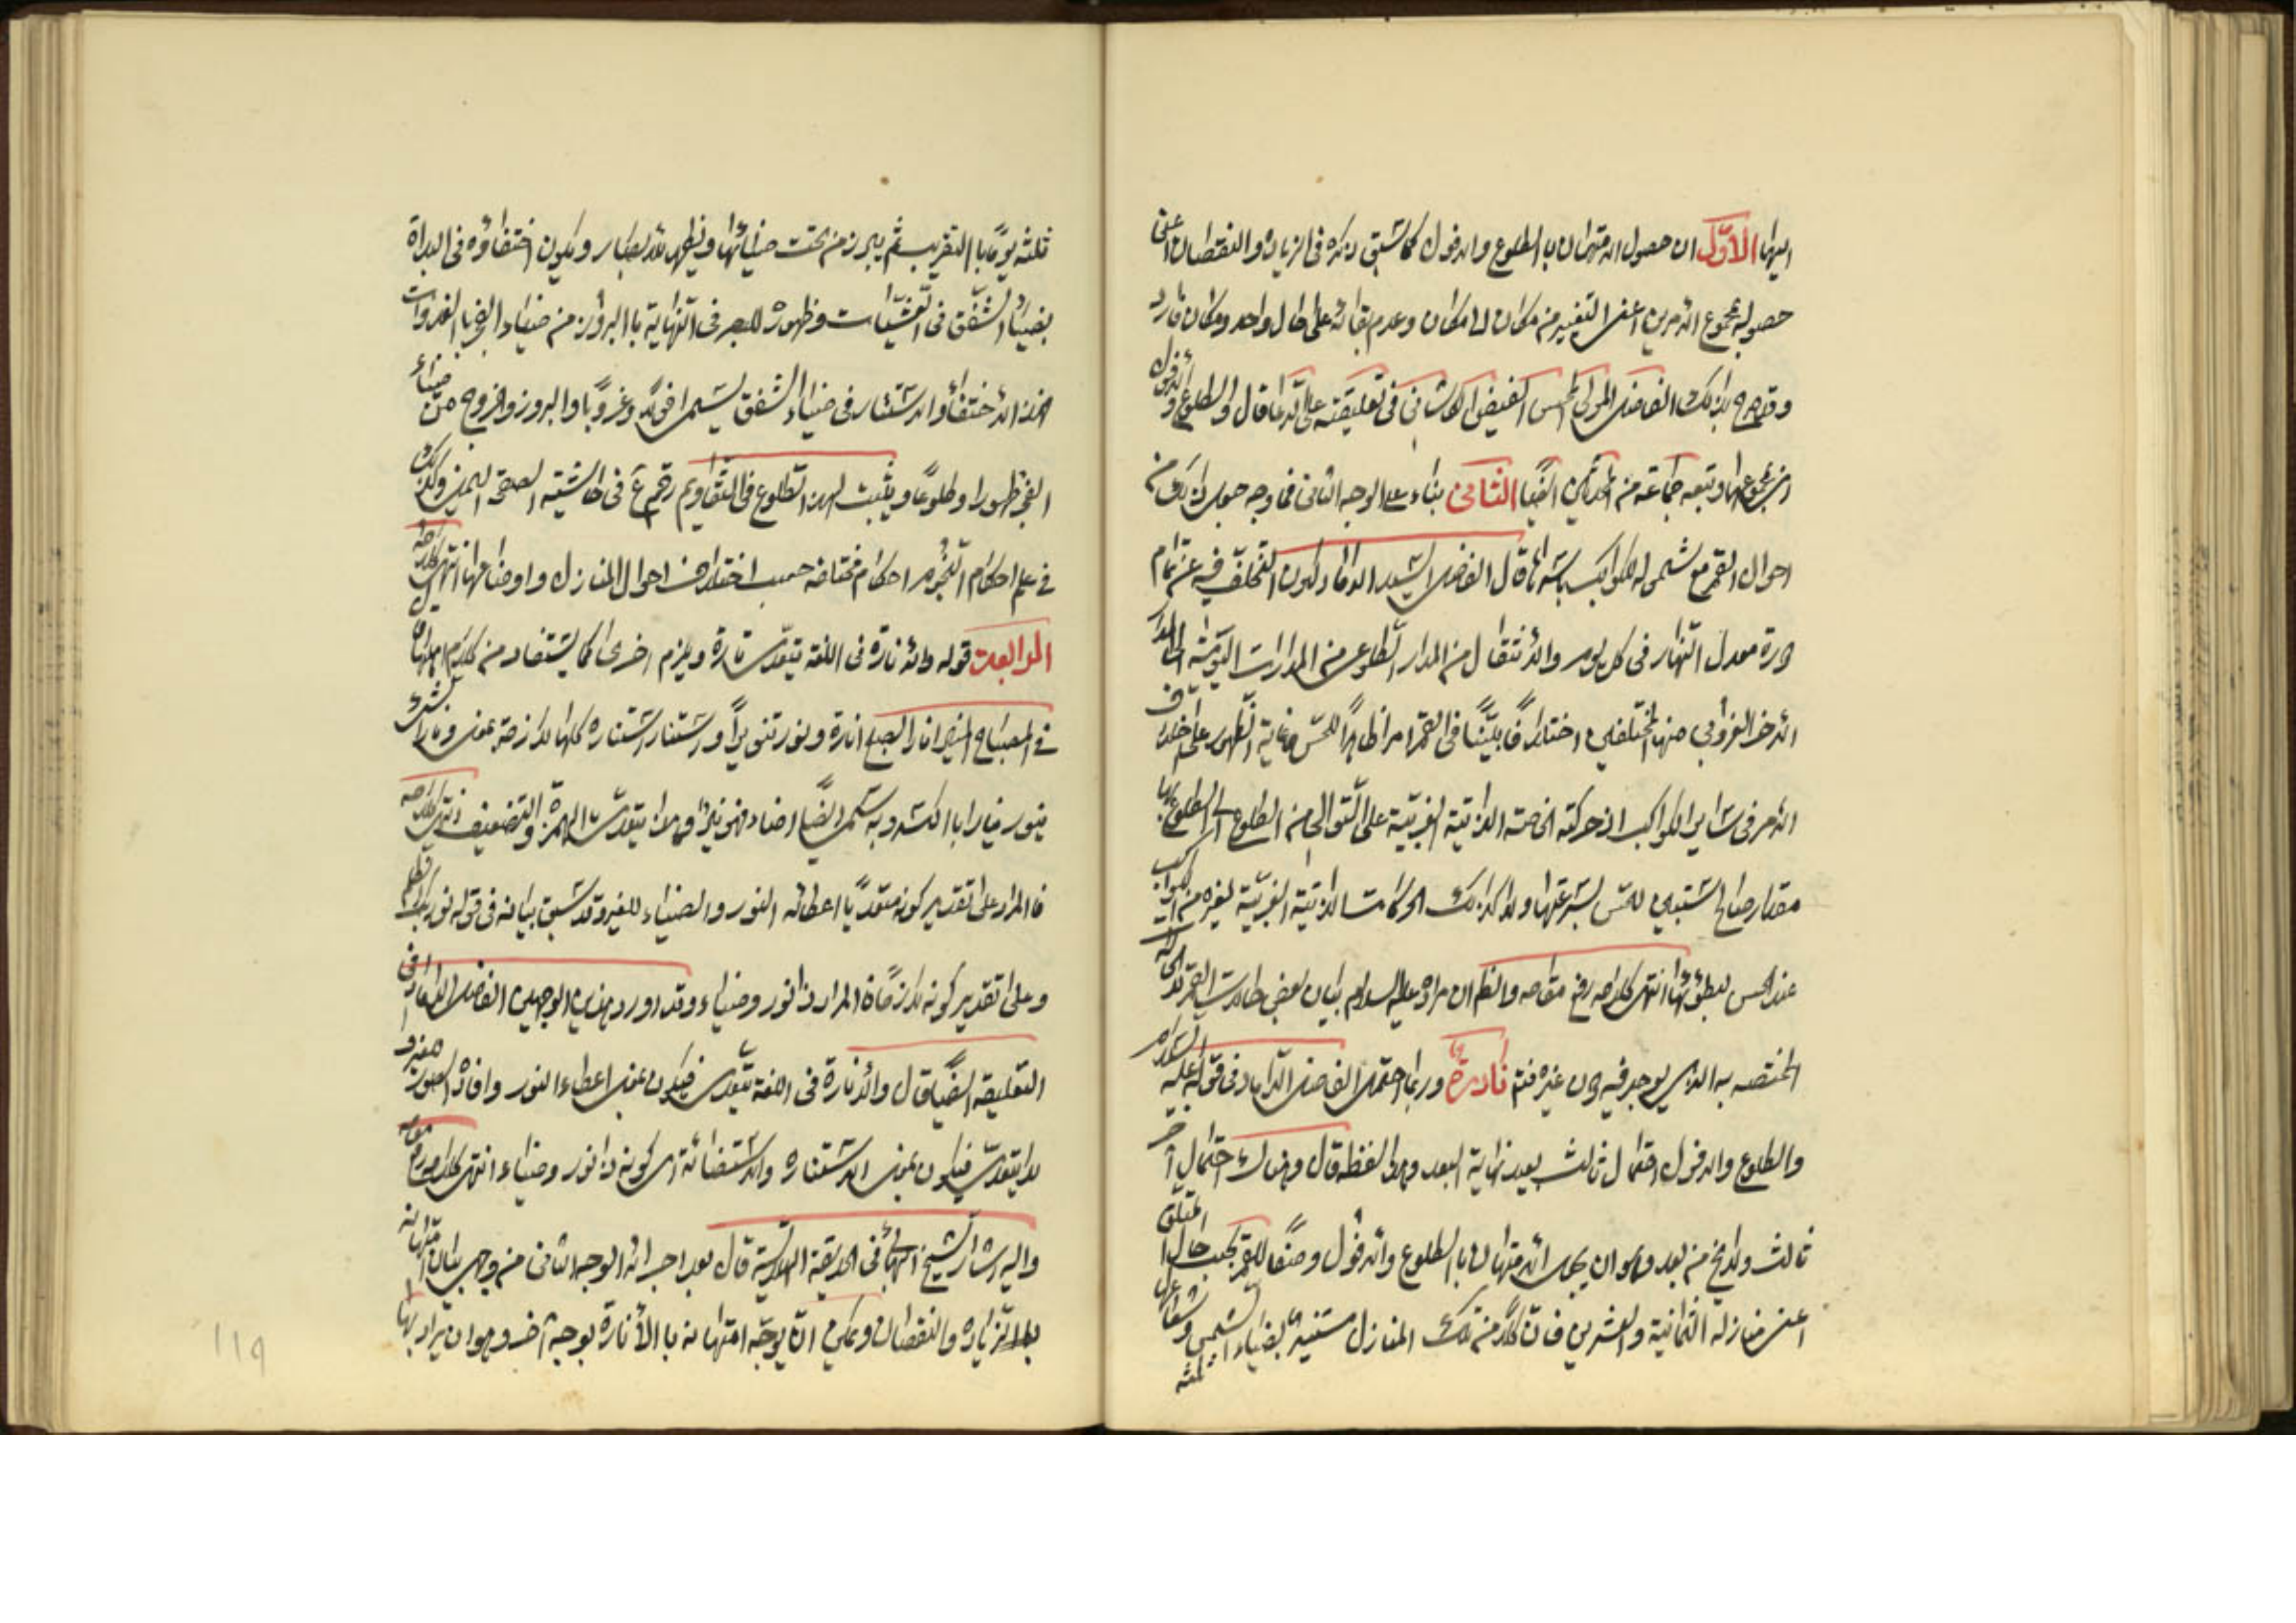 اليها الأوّل ان حصول الامتهان بالطلوع والافول كما سبق ذكره فى الزيادة والنقصان اعنى
حصوله بمجموع الامرين اعنى التغيير من مكان الى مكان وعدم بقائه على حال واحد ومكان فارد
وقد صرح بذلك الفاضل المولى المحسن الفيض الكاشانى فى تعليقته على الدعا قال والطلوع والافول
بمجموعهما وتبعه جماعة من ايضًا الثانى بناء على الوجه الثانى فما وجه جعل ذلك من
احوال القمر مع شموله للكواكب باسرها قال الفاضل السيد الداماد كون التخلف فيه عن تمام
دورة معدل النهار فى كل يوم والانتقال من المدار الطلوعى من المدارات اليومية الى المدار
الاخر الغروبى منها المختلفين اختلافًا بيّنًا فى القمر امرا ظاهرًا للحسّ فى غاية الظهور على خلاف
الامر فى سائر الكواكب اذ حركته الخاصة الذاتية الغربيّة على التوالى من الطلوع الى الطلوع لها
مقدار صالح يستبين للحسّ لسرعتها ولا كذلك الحركات الذاتية الغربيّة لغيره من الكواكب
عند الحس لبطؤها انتهى كلامه رفع مقامه والظ ان مراده عليه السلام بيان بعض حالات القمر لا الحالة
المختصه به الذى يوجد فيه دون غيره فتم نادرة وربما احتمل الفاضل الداماد فى قوله عليه السلام
والطلوع والافول احتمال ثالث بعيد نهاية البعد وهذا لفظه قال وهناك احتمال آخر
ثالث ولا يخ من بعد وهو ان يجعل الامتهان بالطلوع والافول وصفًا للقمر بحسب حال المتعلق
اعنى منازله الثمانية والعشرين فان كلًا من تلك المنازل مستنير بضياء الشمس وشعاعها
ثلثة
ثلثه يومًا بالتقريب ثم يبرز من تحت ضيائها ويظهر للابصار ويكون اختفاؤه فى البداة
بضياء الشفق فى العشيّات وظهوره للبصر فى النهاية بالبروز من ضياء الفجر بالغدوات
فهذا الاختفاء والاستتار فى ضياء الشفق يسمى افولًا وغروبًا والبروز والخروج من ضياء
الفجر ظهورا وطلوعًا ويثبت لهذا الطلوع فى التقاويم رقم ع فى حاشية الصفحة اليمنى وكذلك
فى علم احكام النجوم احكام مختلفة حسب اختلاف احوال المنازل واوضاعها انتهى كلامه
الرابعة قوله والانارة فى اللغة يتعدّى تارة ويلزم اخرى كما يستفاد من كلام اهلها
فى المصباح المنير انار الصبح انارة ونور تنويرًا واستنار استنارة كلها لازمة بمعنى ونار الشىء
ينور نيارا بالكسر وبه سمى ايضًا اضاء فهو نيّر وهذا يتعدّى بالهمزة والتضعيف انتهى كلامه
فالمراد على تقدير كونه متعديًا اعطائه النور والضياء للغير وقد سبق بيانه فى قوله نور بك الظلم
وعلى تقدير كونه لازمًا فالمراد ذا نور وضياء وقد اورد هذين الوجهين الفاضل الداماد فى
التعليقة ايضًا قال والانارة فى اللغة يتعدى فيكون بمعنى اعطاء النور وافادة للغير و
لا يتعدى فيكون بمعنى الاستنارة والاستضائة اى كونه ذا نور وضياء انتهى كلامه رفع مقامه
واليه اشار الشيخ البهائى فى الحديقة الهلالية قال بعد اجرائه الوجه الثانى من وجهى بيان امتهانه
بالزيادة والنقصان ويمكن ان يوجّه امتهانه بالأنارة بوجه آخر وهو ان يراد بها
119